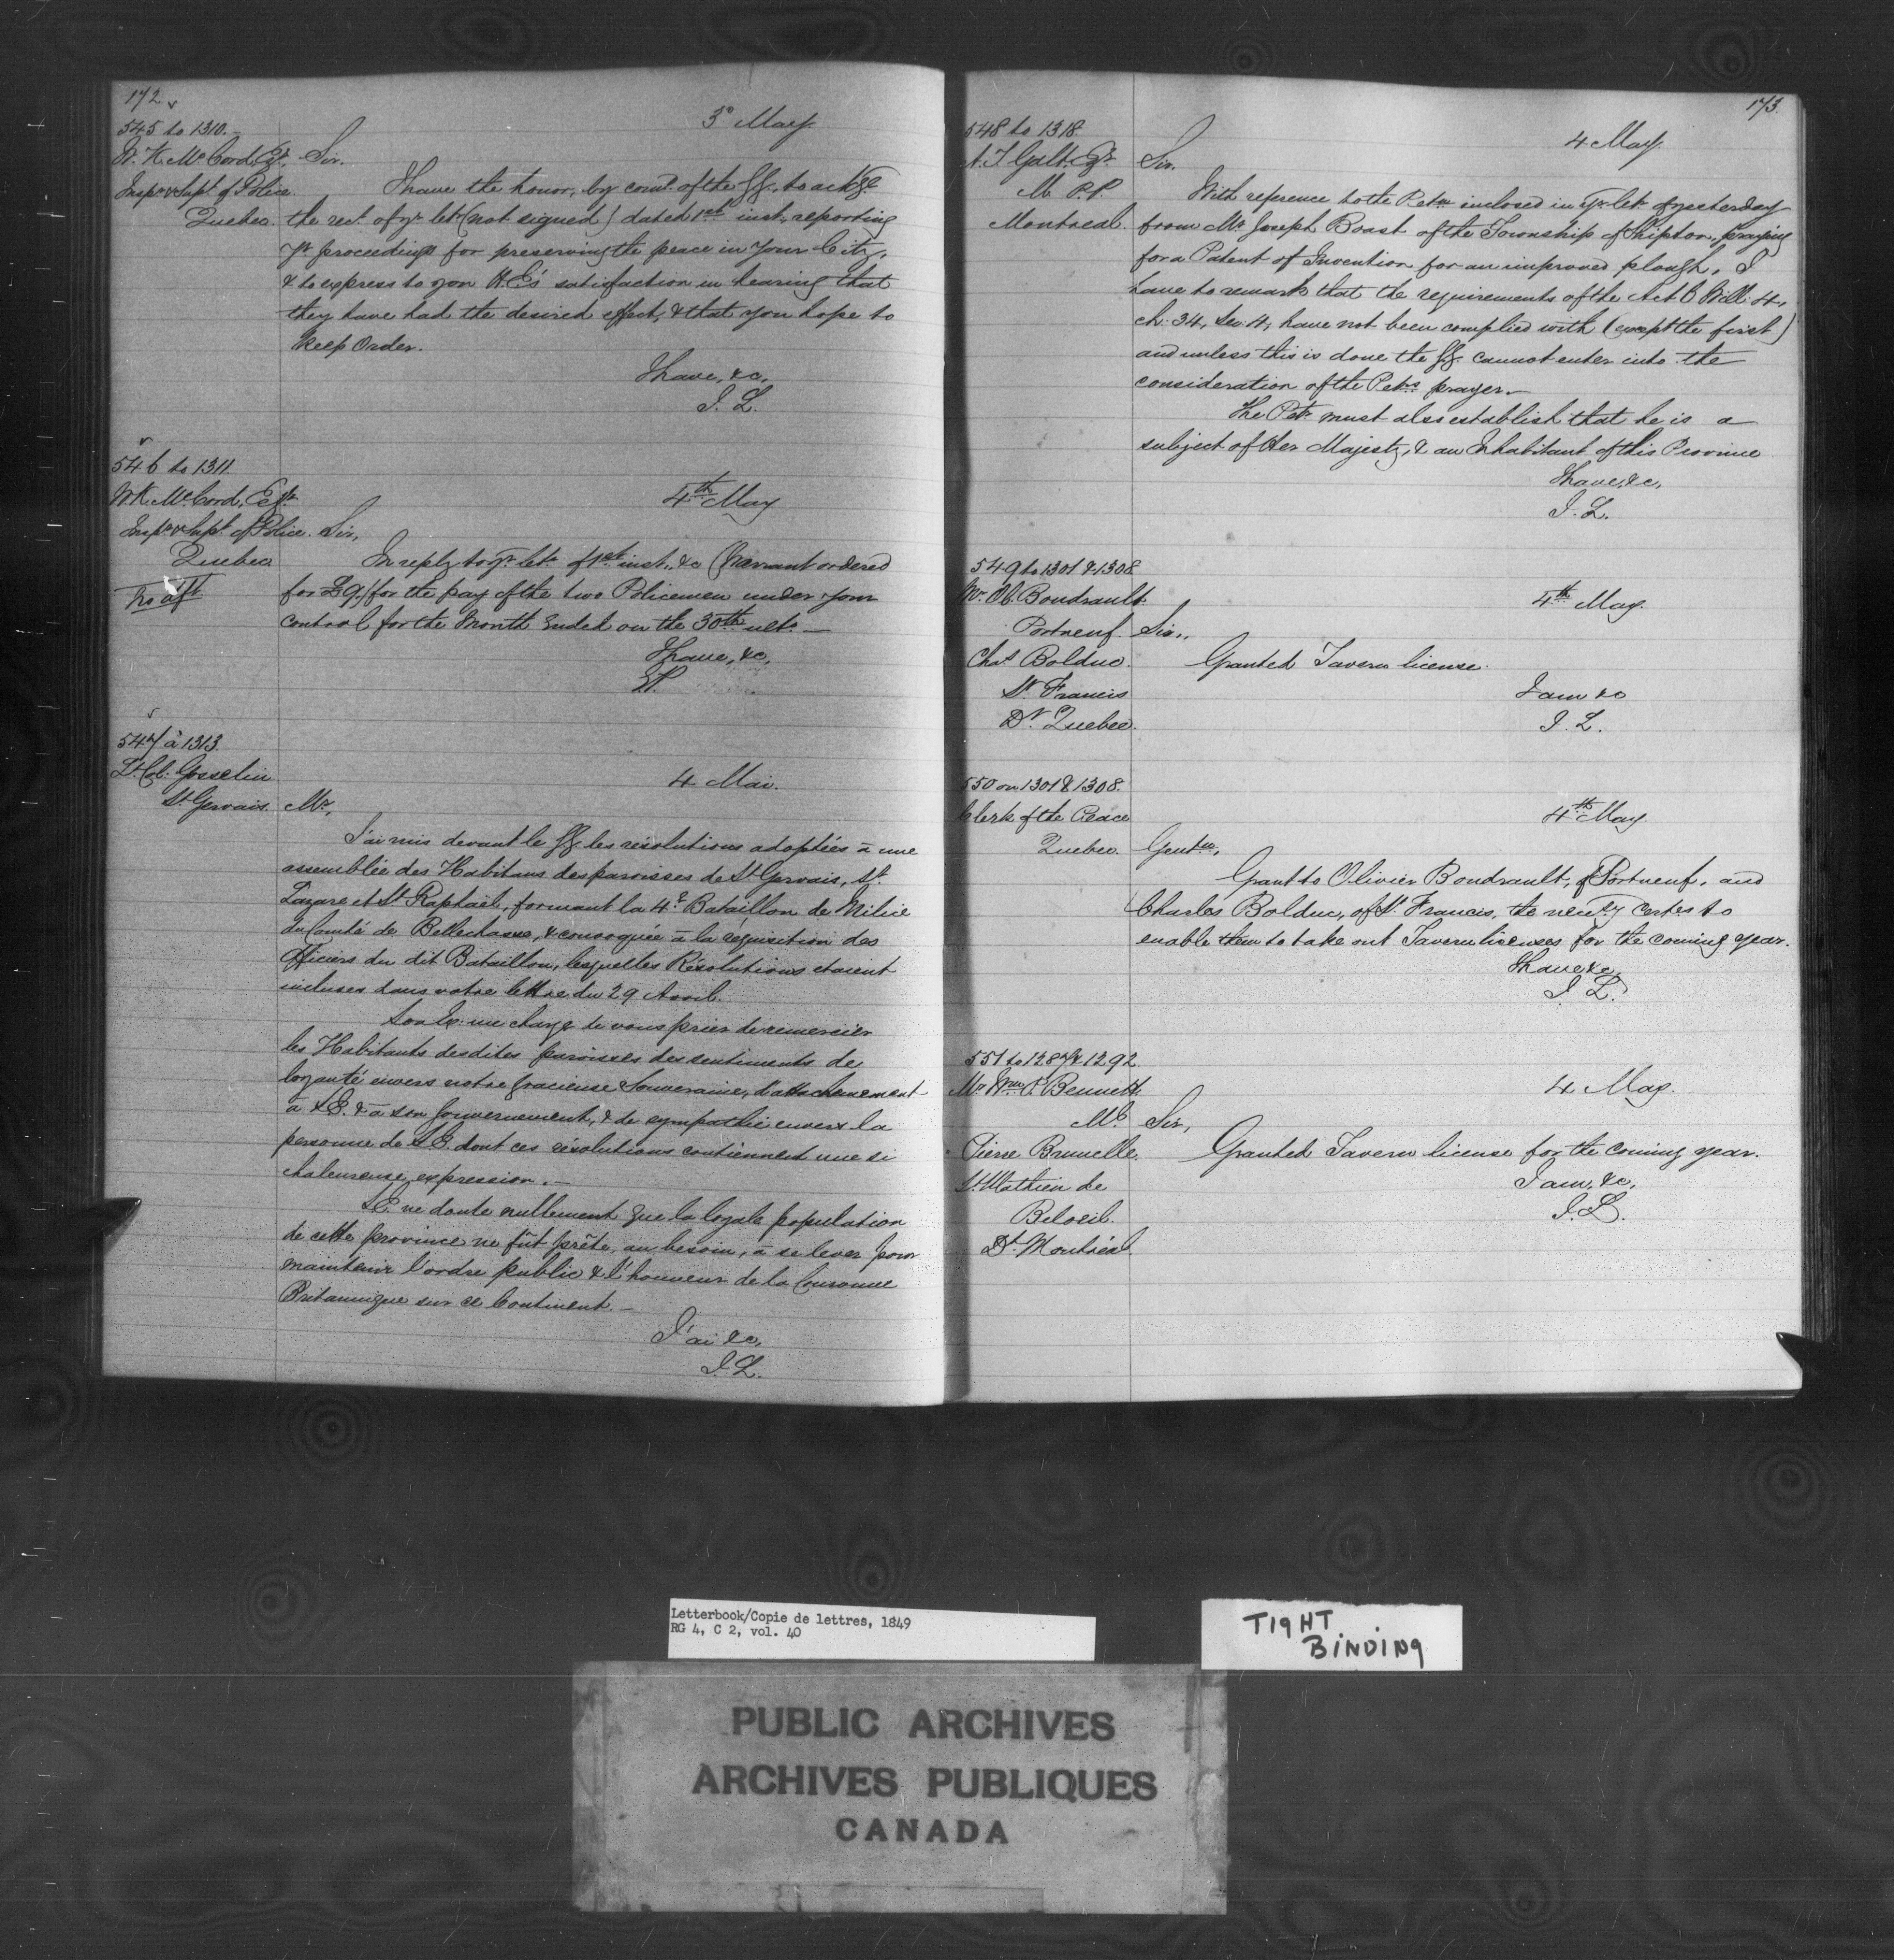 172
545 to 1310.
W. K. McCord, Esqr.
Inspr & Supt of Police.
Quebec.
3d May
Sir.
I have the honor, by comd. of the GG., to ackge
the rect. of yr. let. (not signed) dated 1st inst., reporting
yr proceedings for preserving the peace in your City,
& to express to you H.E's satisfaction in hearing that
they have had the desired effect, & that you hope to
keep Order.
I have, &c,
J. L.
546 to 1311.
W K. McCord, Esqr.
Inspr & Supt. of Police.
Quebec
No dft
4th May
Sir,
In reply to yr. letr. of 1st inst., &c (Warrant ordered
for £9,) for the pay of the two Policemen under your
control for the Month ended on the 30th ulto. —
I have, &c,
547 à 1313.
Lt. Col. Gosselin
St Gervais.
4 Mai.
Mr,
J'ai mis devant le GG les résolutions adoptées à une
assemblée des Habitans des paroisses de St Gervais, St.
Lazare et St Raphaël, formant la 4e. Bataillon de Milice
du Comté de Bellechasse, & convoquée à la requisition des
Officiers du dit Bataillon, lesquelles Résolutions étaient
incluses dans votre lettre du 29 Avril.
Son Ex. me charge de vous prier de remercier
les Habitants desdites paroisses des sentiments de
loyauté envers notre gracieuse Souveraine, d'attachement
à S.E. & à son Gouvernement, & de sympathie envers la
personne de S.E. dont ces résolutions contiennent une si
chaleureuse expression. —
S.E. ne doute nullement que la loyale population
de cette province ne fût prête, au besoin, à se lever pour
maintenir l'ordre public & l'honneur de la Couronne
Britannique sur ce Continent. —
J'ai &c,
J. L.
173.
548 to 1318.
A. T Galt, Esqr.
M. P. P.
Montreal.
4 May.
Sir.
With reference to the Petn. inclosed in yr. letr. of yesterday
from Mr Joseph Boast of the Township of Shipton, praying
for a Patent of Invention for an improved plough, I
have to remark that the requirements of the Act 6 Will. 4,
ch. 34, Sec. 4, have not been complied with (except the first)
and unless this is done the GG. cannot enter into the
consideration of the Petrs. prayer —
The Petr must also establish that he is a
subject of Her Majesty, & an Inhabitant of this Province
I have, &c,
J. L.
549 to 1301 & 1308
Mr. Ol. Boudrault.
Portneuf.
Chas Bolduc.
St. Francis
Dt. Quebec.
4th May.
Sir,
Granted Tavern license.
I am &c
J. L.
550 on 1301 & 1308.
Clerk of the Peace
Quebec.
4th May.
Gentn,
Grant to Olivier Boudrault, of Portneuf, and
Charles Bolduc, of St. Francis, the necessy certes to
enable them to take out Tavern licenses for the coming year.
I have &c,
J. L.
551 to 1287 & 1292.
Mr. Wm. P. Bennett.
Ml.
Pierre Brunelle.
St. Mathieu de
Beloeil.
Dt. Montréal.
4 May.
Sir,
Granted Tavern license for the coming year.
I am, &c,
J. L.
Letterbook/Copie de lettres, 1849
RG 4, C 2, vol. 40
TIGHT
BINDING
PUBLIC ARCHIVES
ARCHIVES PUBLIQUES
CANADA